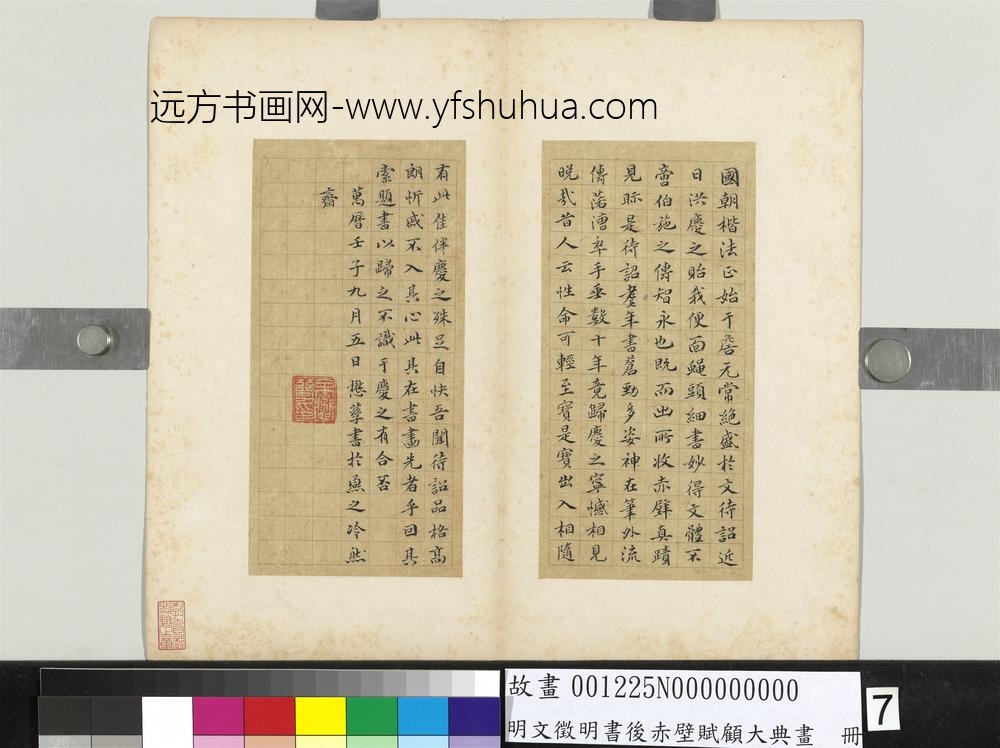 远方书画网-www.yfshuhua.com
國朝楷法正始于居元常絶盛於文待詔近
日洪慶之貽我便面蠅頭細書妙得文體不
啻伯施之傳智永也既而出所收赤壁真蹟
見眎是待詔耋年書蒼勁多姿神在筆外流
傳落漕卒手垂數十年竟歸慶之寧憾相見
晚哉昔人云性命可輕至寶是寶出入相隨
有此佳伴慶之殊足自快吾聞待詔品格高
朗忻戚不入其心此其在書畫先者乎回其
索題書以歸之不識于慶之有合否
萬曆壬子九月五日懋孳書於燕之冷然
齋
故畫 001225N000000000
明文徵明書後赤壁賦顧大典畫 冊
7